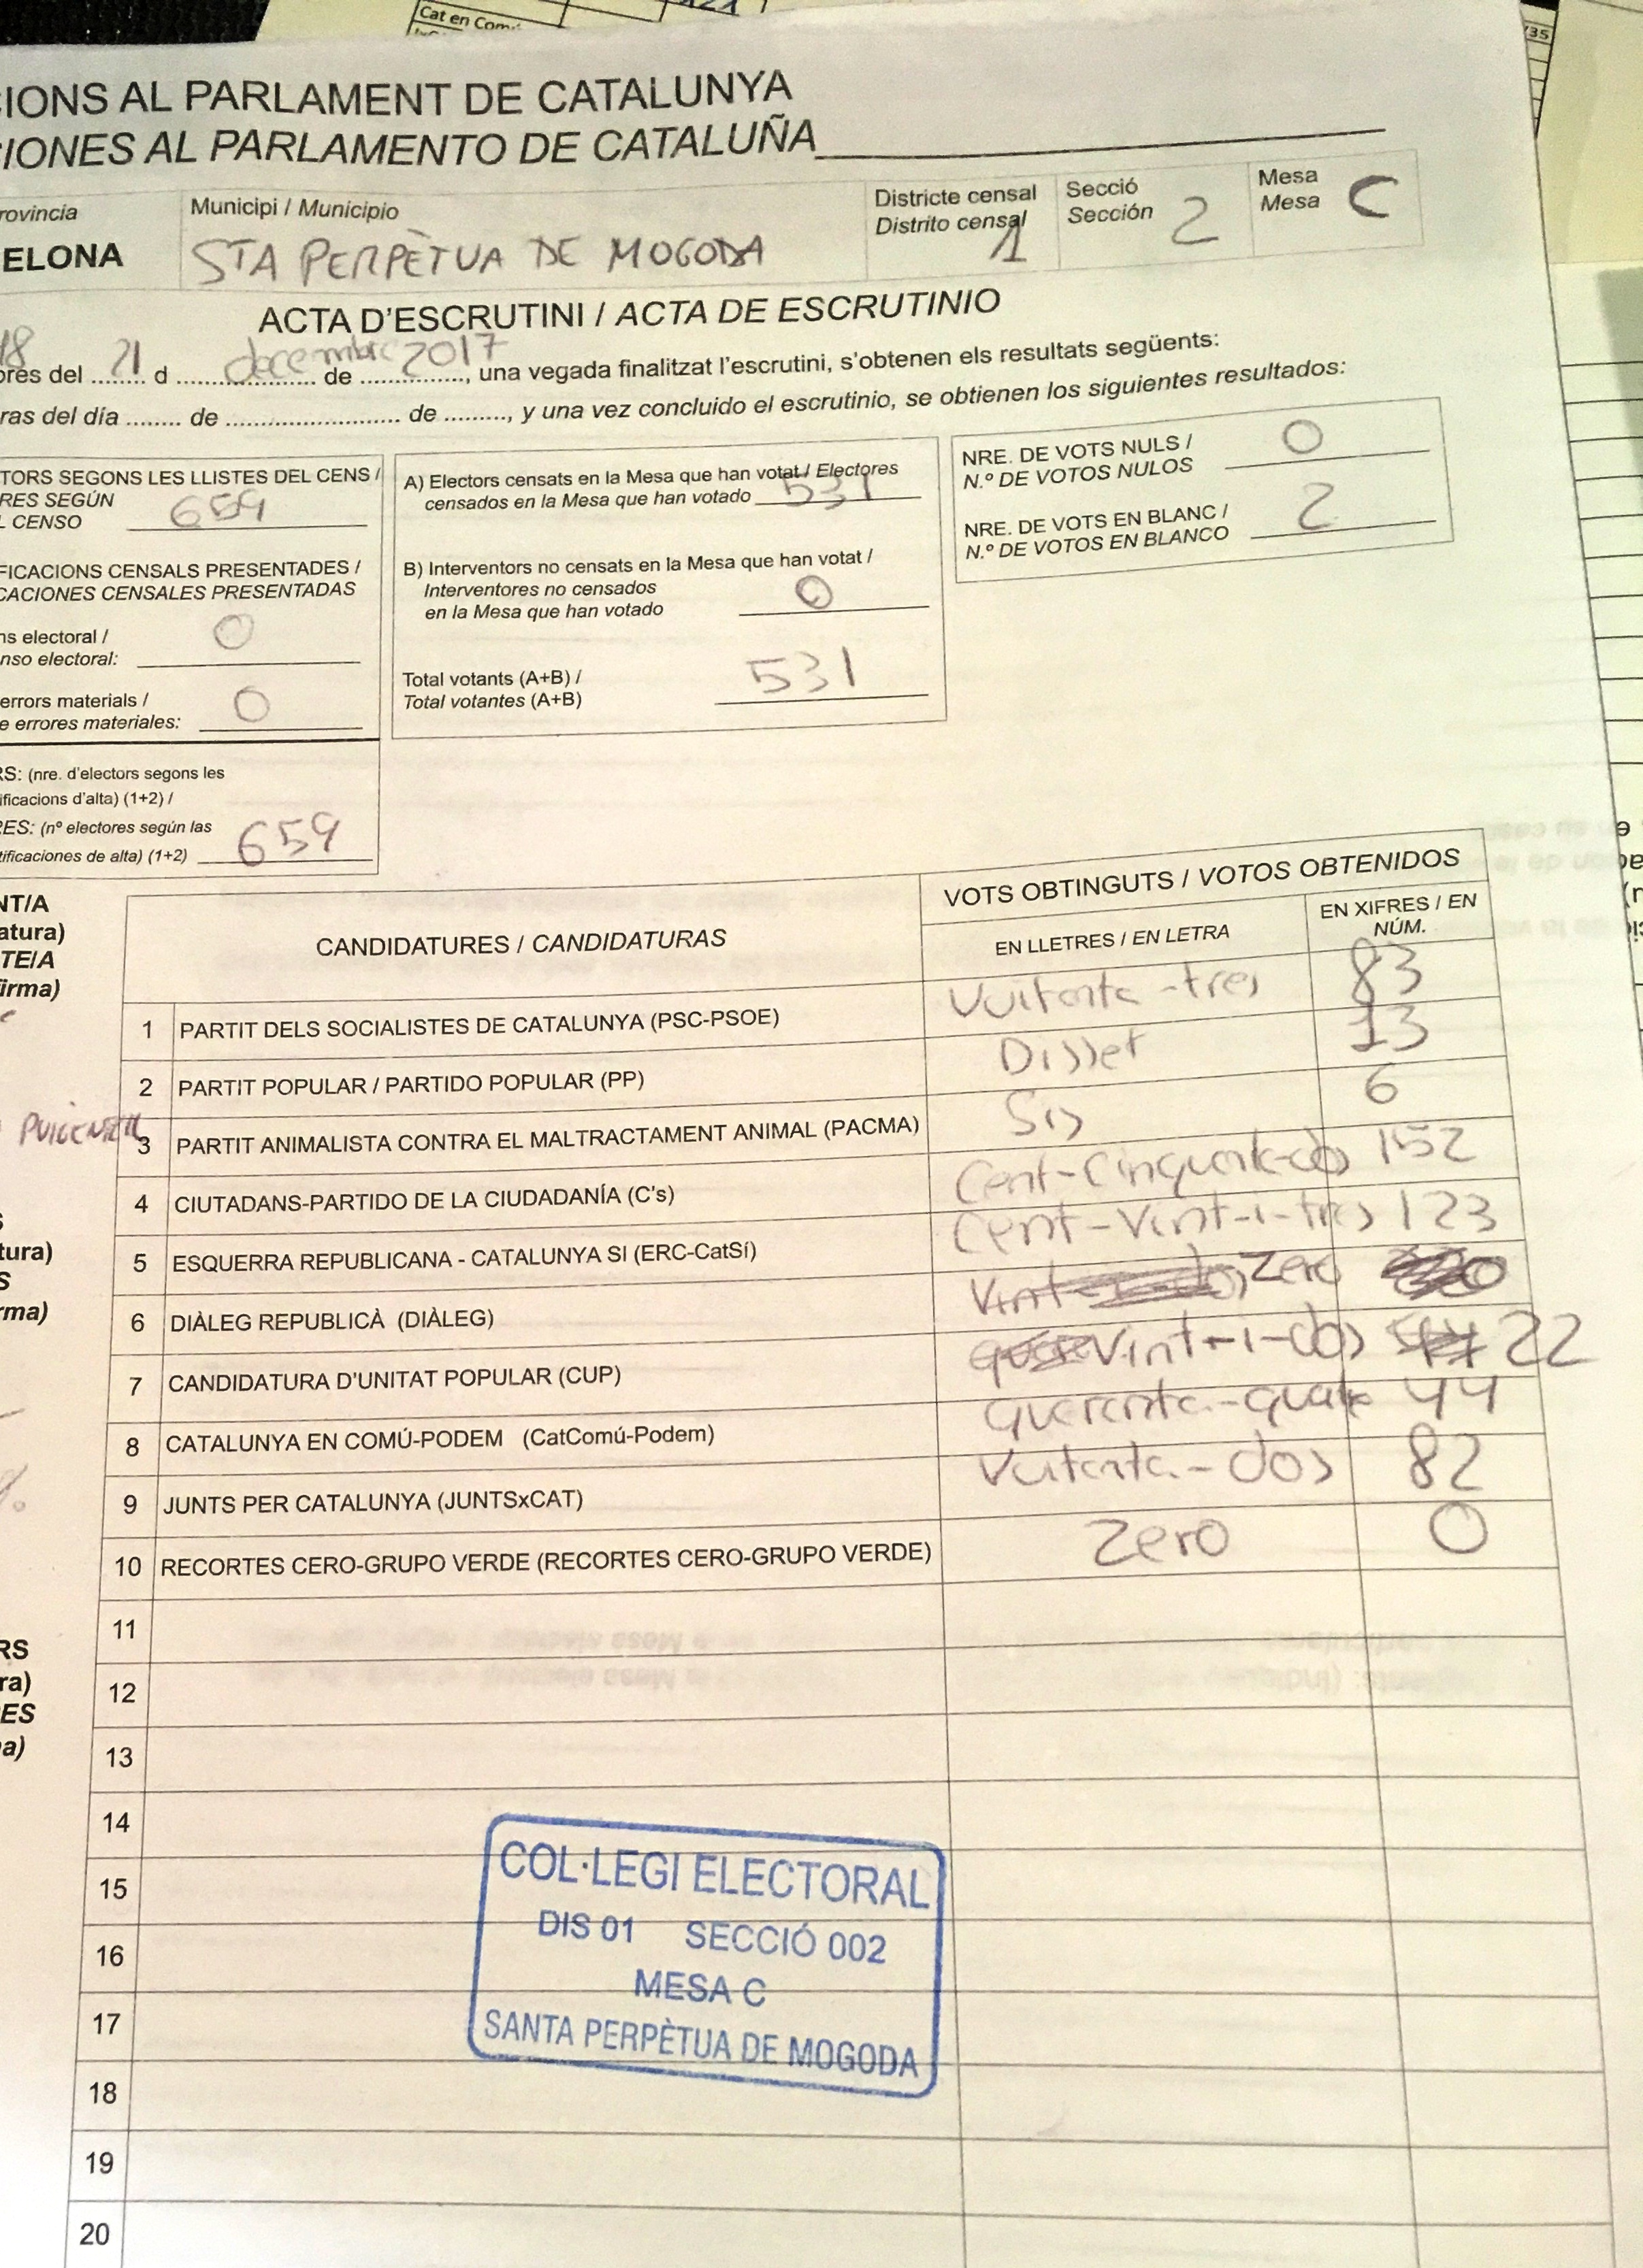 CIONS AL PARLAMENT DE CATALUNYA
IONES AL PARLAMENTO DE CATALUÑA
rovincia
ELONA
Municipi / Municipio
STA PERPÈTUA DE MOGODA
Districte censal
Distrito censal
1
Secció
Sección
2
Mesa
Mesa
C
ACTA D'ESCRUTINI / ACTA DE ESCRUTINIO
ores del ........ d ............ de ............, una vegada finalitzat l'escrutini, s'obtenen els resultats següents:
18 21 decembre 2017
ras del día ........ de .................... de ........, y una vez concluido el escrutinio, se obtienen los siguientes resultados:
TORS SEGONS LES LLISTES DEL CENS /
RES SEGÚN
L CENSO
659
FICACIONS CENSALS PRESENTADES /
CACIONES CENSALES PRESENTADAS
ns electoral /
nso electoral:
0
errors materials /
e errores materiales:
0
RS: (nre. d'electors segons les
tificacions d'alta) (1+2) /
RES: (nº electores según las
tificaciones de alta) (1+2)
659
A) Electors censats en la Mesa que han votat / Electores
censados en la Mesa que han votado
531
B) Interventors no censats en la Mesa que han votat /
Interventores no censados
en la Mesa que han votado
0
Total votants (A+B) /
Total votantes (A+B)
531
NRE. DE VOTS NULS /
N.º DE VOTOS NULOS
0
NRE. DE VOTS EN BLANC /
N.º DE VOTOS EN BLANCO
2
CANDIDATURES / CANDIDATURAS
VOTS OBTINGUTS / VOTOS OBTENIDOS
EN LLETRES / EN LETRA
EN XIFRES / EN NÚM.
1 PARTIT DELS SOCIALISTES DE CATALUNYA (PSC-PSOE) Vuitanta-tres 83
2 PARTIT POPULAR / PARTIDO POPULAR (PP) Disset
3 PARTIT ANIMALISTA CONTRA EL MALTRACTAMENT ANIMAL (PACMA) Sis 6
4 CIUTADANS-PARTIDO DE LA CIUDADANÍA (C's) Cent-Cinquanta-dos 152
5 ESQUERRA REPUBLICANA - CATALUNYA SI (ERC-CatSí) Cent-Vint-i-tres 123
6 DIÀLEG REPUBLICÀ (DIÀLEG) Zero 0
7 CANDIDATURA D'UNITAT POPULAR (CUP) Vint-i-dos 22
8 CATALUNYA EN COMÚ-PODEM (CatComú-Podem) Quaranta-quatre 44
9 JUNTS PER CATALUNYA (JUNTSxCAT) Vuitanta-dos 82
10 RECORTES CERO-GRUPO VERDE (RECORTES CERO-GRUPO VERDE) Zero 0
11
12
13
14
15
16
17
18
19
20
COL·LEGI ELECTORAL
DIS 01 SECCIÓ 002
MESA C
SANTA PERPÈTUA DE MOGODA
NTIA
atura)
TEIA
firma)
tura)
rma)
RS
ra)
ES
a)
Cat en Com